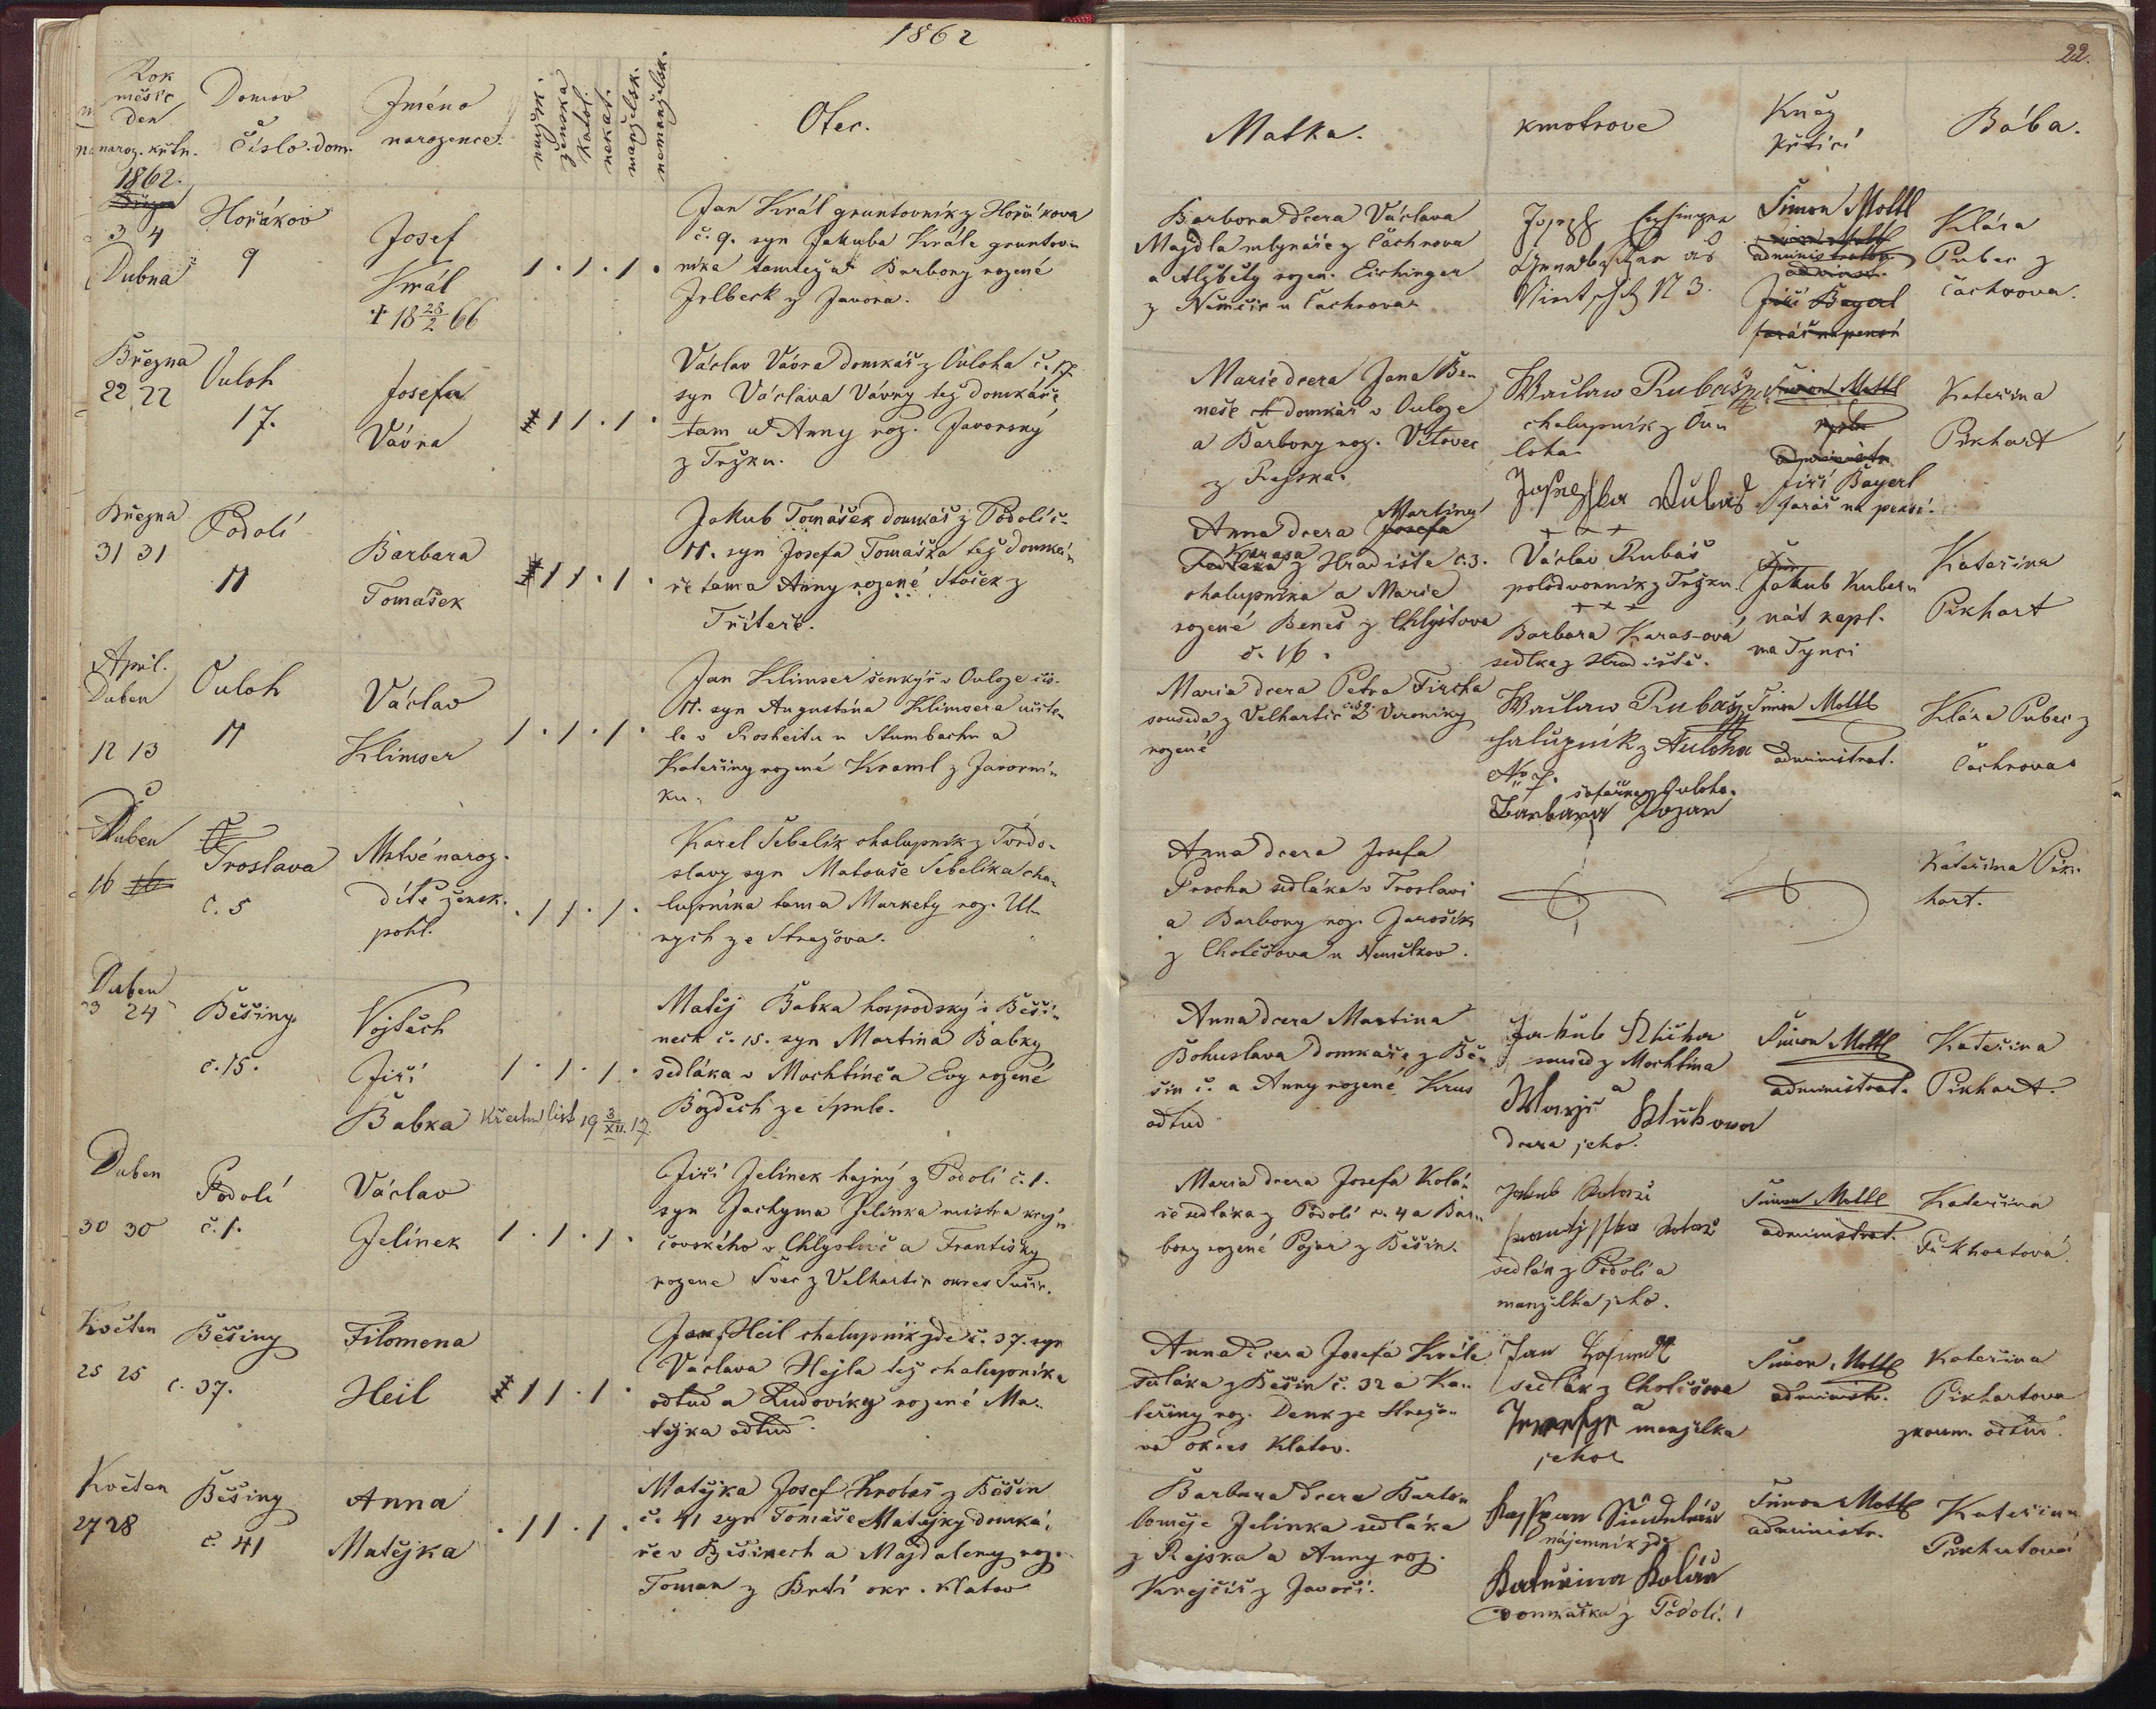 1862
22.
Rok
měsíc
Den
naroz. křtn.
Domov
Číslo dom.
Jméno
narozence.
mužsk.
ženská
katol.
nekat.
manželsk.
nemanželsk.
Otec.
Matka.
kmotrove
Kněz
křtící
Bába.
1862.
3 4
Dubna
Hořákov
9
Josef
Král
† 18 28/2 66
1 . 1 . 1 .
Jan Král gruntovník z Hořákova
č. 9. syn Jakuba Krále gruntov-
níka tamtéž a Barbory rozené
Jelbeck z Javora.
Barbora dcera Václava
Majdla mlynáře z Čachrova
a Alžběty rozen. Eichinger
z Němčic u Čachrova
Joseph
N 3.
Šimon Mottl
administrator
Jiří Bayerl
farář na pensi
Klára
Puber z
Čachrova.
Března
22 22
Ouloh
17.
Josefa
Vávra
1 1 . 1 .
Václav Vávra domkář z Ouloha č. 17
syn Václava Vávry též domkáře
tam a Anny roz. Javorský
z Tržku.
Marie dcera Jana Be-
neše domkář v Ouloze
a Barbory roz. Vítovec
z Rajska.
Waclaw Rubaš
chalupník z Ou-
loha
Josefka Rubaš
Šimon Mottl
administr.
Jiří Bayerl
farář na pensi.
Kateřina
Pikhart
Března
31 31
Podolí
11
Barbara
Tomášek
1 1 . 1 .
Jakub Tomášek domkář z Podolí č.
11. syn Josefa Tomáška též domká-
ře tam a Anny rozené Stošek z
Tříteře.
Anna dcera Josefa Martina
Karasa z Hradiště č. 3.
chalupníka a Marie
rozené Beneš z Chlystova
č. 16.
+ + +
Václav Rubáš
polodvorník z Tržku
+ × +
Barbara Karas-ová
sedlka z Hradiště.
Jakub Kuber-
nát kapl.
na Tynci
Kateřina
Pikhart
April.
Duben
12 13
Ouloh
11
Václav
Klimser
1 . 1 . 1 .
Jan Klimser šenkýř v Ouloze čis.
11. syn Augustína Klimsera učite-
le v Rosheitu u Stumbachu a
Kateřiny rozené Kraml z Javorní-
ku.
Maria dcera Petra Fircha
souseda z Velhartic č. 59. a Veroniky
rozené
Waclaw Rubaš
chalupník z Auloha
No 7.
šafářka z Ouloha.
Barbara Kozar
Šimon Mottl
administrat.
Klára Puber z
Čachrova
Duben
16 16
Troslava
č. 5
Mrtvé naroz.
dítě žensk.
pohl.
. 1 1 . 1 .
Karel Šebelík chalupník z Tvrdo-
slavy syn Matouše Šebelíka cha-
lupníka tam a Markety roz. Ul-
rych ze Stražova.
Anna dcera Josefa
Procha sedláka v Troslavi
a Barbory roz. Jarošík
z Cholčšova u Nemělkov.
Kateřina Pik-
hart.
Duben
23 24
Běšiny
č. 15.
Vojtěch
Jiří
Babka křestní list 19 3/XII. 17.
1 . 1 . 1 .
Matěj Babka hospodský v Běši-
nech č. 15. syn Martina Babky
sedláka v Mochtíně a Evy rozené
Bozdech ze Spule.
Anna dcera Martina
Bohuslava domkáře z Bě-
šin č. a Anny rozené Krus
odtud
Jakub
soused z Mochtína
a
Marie
dcera jeho.
Šimon Mottl
administrat.
Kateřina
Pikhart.
Duben
30 30
Podolí
č. 1.
Václav
Jelínek
1 . 1 . 1 .
Jiří Jelínek hajný z Podolí č. 1.
syn Jachyma Jelínka mistra krej-
čovského v Chlystově a Františky
rozene Švec z Velhartic okres Sušic.
Maria dcera Josefa Kolá-
ře sedláka z Podolí č. 4 a Bar-
bory rozené Pojar z Běšin.
Jakub
sedlák z Podolí a
manželka jeho.
Šimon Mottl
administrat.
Kateřina
Pikhartová
Květen
25 25
Běšiny
č. 37.
Filomena
Heil
1 1 . 1 .
Jan Heil chalupník zde č. 37. syn
Václava Hejla též chalupníka
odtud a Ludoviky rozené Ma-
tějka odtud.
Anna dcera Josefa Krále
sedláka z Běšin č. 32 a Ka-
teřiny roz. Denk ze Stražo-
va okres Klatov.
Jan
sedlák z Cholčšova
a
manželka
jeho
Šimon Mottl
administr.
Kateřina
Pikhartova
zkoum. odtud.
Květen
27 28
Běšiny
č. 41
Anna
Matějka
. 1 1 . 1 .
Matějka Josef z Běšin
č. 41 syn Tomáše Matějky domká-
ře v Běšinech a Majdaleny roz.
Toman z Brtí okr. Klatov
Barbara dcera Barto-
loměje Jelinka sedláka
z Rajska a Anny roz.
Krejčíř z Javoří.
Kašpar Šindelář
nájemník zde
Kateřina Kolář
domkářka z Podolí. 1
Šimon Mottl
administr.
Kateřina
Pikhartová